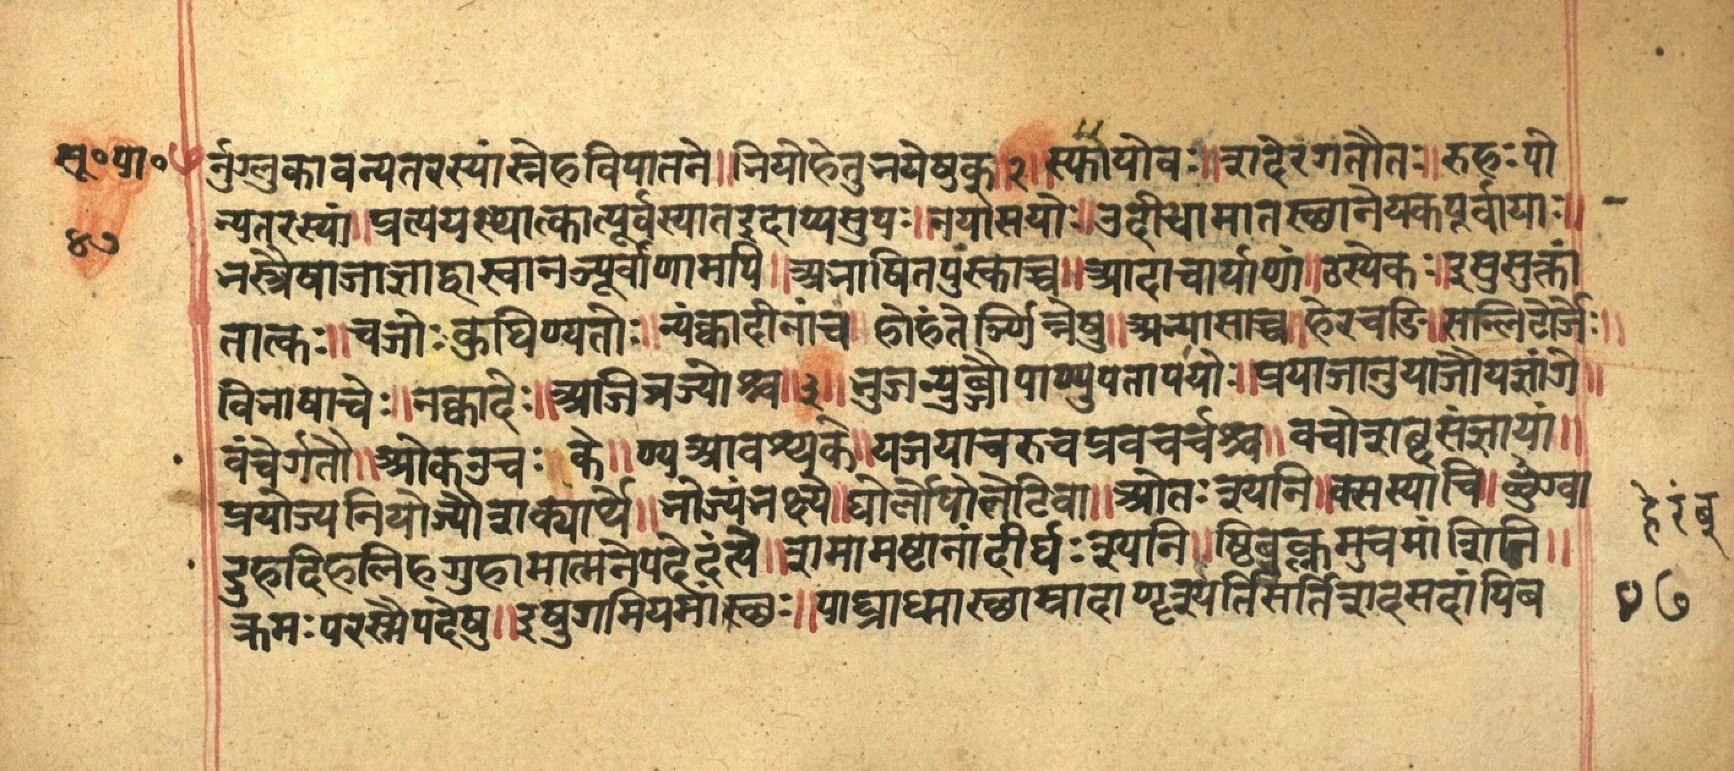 सू॰पा॰७
४७
र्नुग्लुकावन्यतरस्यांस्नेहविपातने॥भियोहेतुभयेषुक्॥२॥स्फायोवः॥शदेरगतौतः॥रुहःपो
न्यतरस्यां॥प्रत्ययस्थात्कात्पूर्वस्यातइदाप्यसुपः॥नयासयोः॥उदीचामातस्थानेयकपूर्वायाः॥
भस्त्रैषाजाज्ञाद्वास्वानञ्पूर्वाणामपि॥अभाषितपुंस्काच्च॥आदाचार्याणां॥ठस्येकः॥इसुसुक्तां
तात्कः॥चजोःकुघिण्यतोः॥न्यंक्वादीनांच॥होहंतेर्ञ्णिन्नेषु॥अभ्यासाच्च॥हेरचङि॥सन्लिटोर्जेः॥
विभाषाचेः॥नक्वादेः॥अजिव्रज्योश्च॥३॥भुजन्युब्जौपाण्युपतापयोः॥प्रयाजानुयाजौयज्ञांगे॥
वंचेर्गतौ॥ओकउचःके॥ण्यआवश्यके॥यजयाचरुचप्रवचर्चश्च॥वचोशब्दसंज्ञायां॥
प्रयोज्यनियोज्यौशक्यार्थे॥भोज्यंभक्ष्ये॥घोर्लोपोलेटिवा॥ओतःश्यनि॥क्सस्याचि॥लुग्वा
दुहदिहलिहगुहामात्मनेपदेदंत्ये॥शमामष्टानांदीर्घःश्यनि॥ष्ठिवुक्लमुचमांशिति॥
क्रमःपरस्मैपदेषु॥इषुगमियमांछः॥पाघ्राध्मास्थाम्नादाण्दृश्यर्तिसर्तिशदसदांपिब
हेरंब्
४७